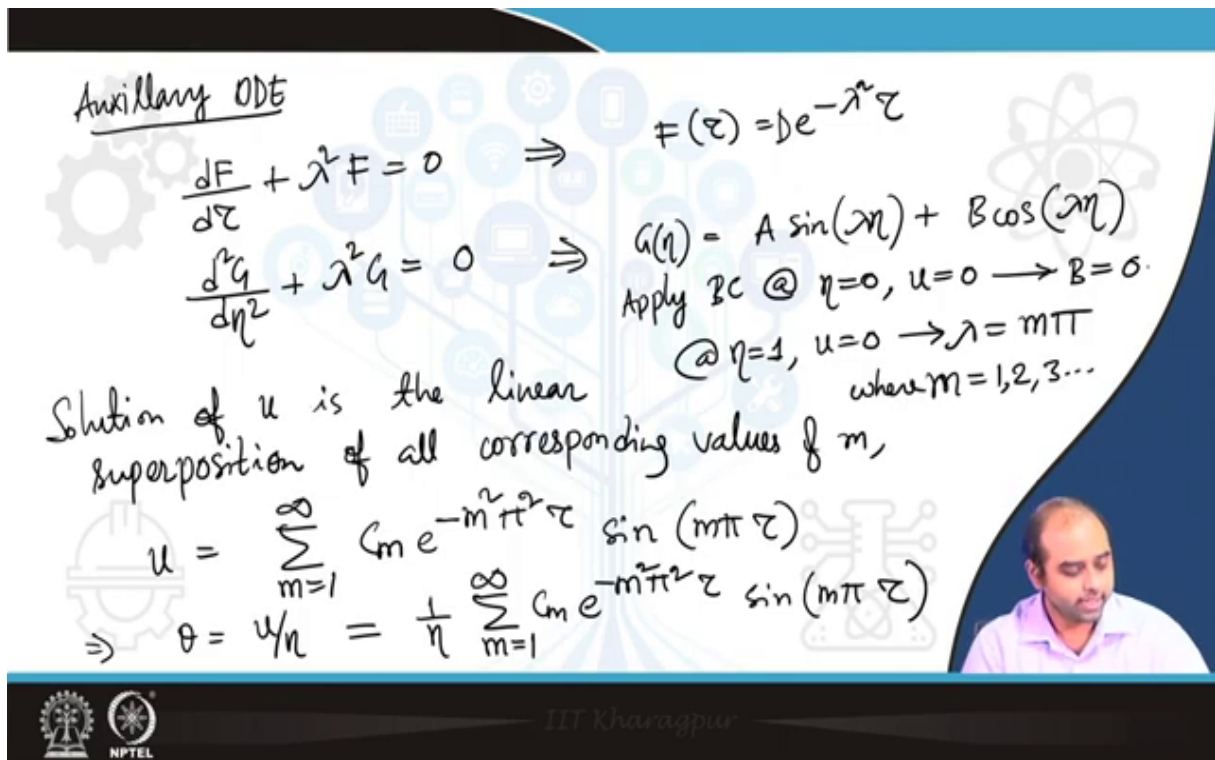 Auxillary ODE
dF/dτ + λ²F = 0 ⇒ F(τ) = De^{-λ²τ}
d²G/dη² + λ²G = 0 ⇒ G(η) = A sin(λη) + B cos(λη)
Apply BC @ η=0, u=0 → B=0.
@ η=1, u=0 → λ = mπ
where m = 1,2,3...
Solution of u is the linear
superposition of all corresponding values of m,
u = ∑_{m=1}^{∞} Cm e^{-m²π²τ} sin (mπ τ)
⇒ θ = u/η = 1/η ∑_{m=1}^{∞} Cm e^{-m²π²τ} sin (mπ τ)
IIT Kharagpur
NPTEL